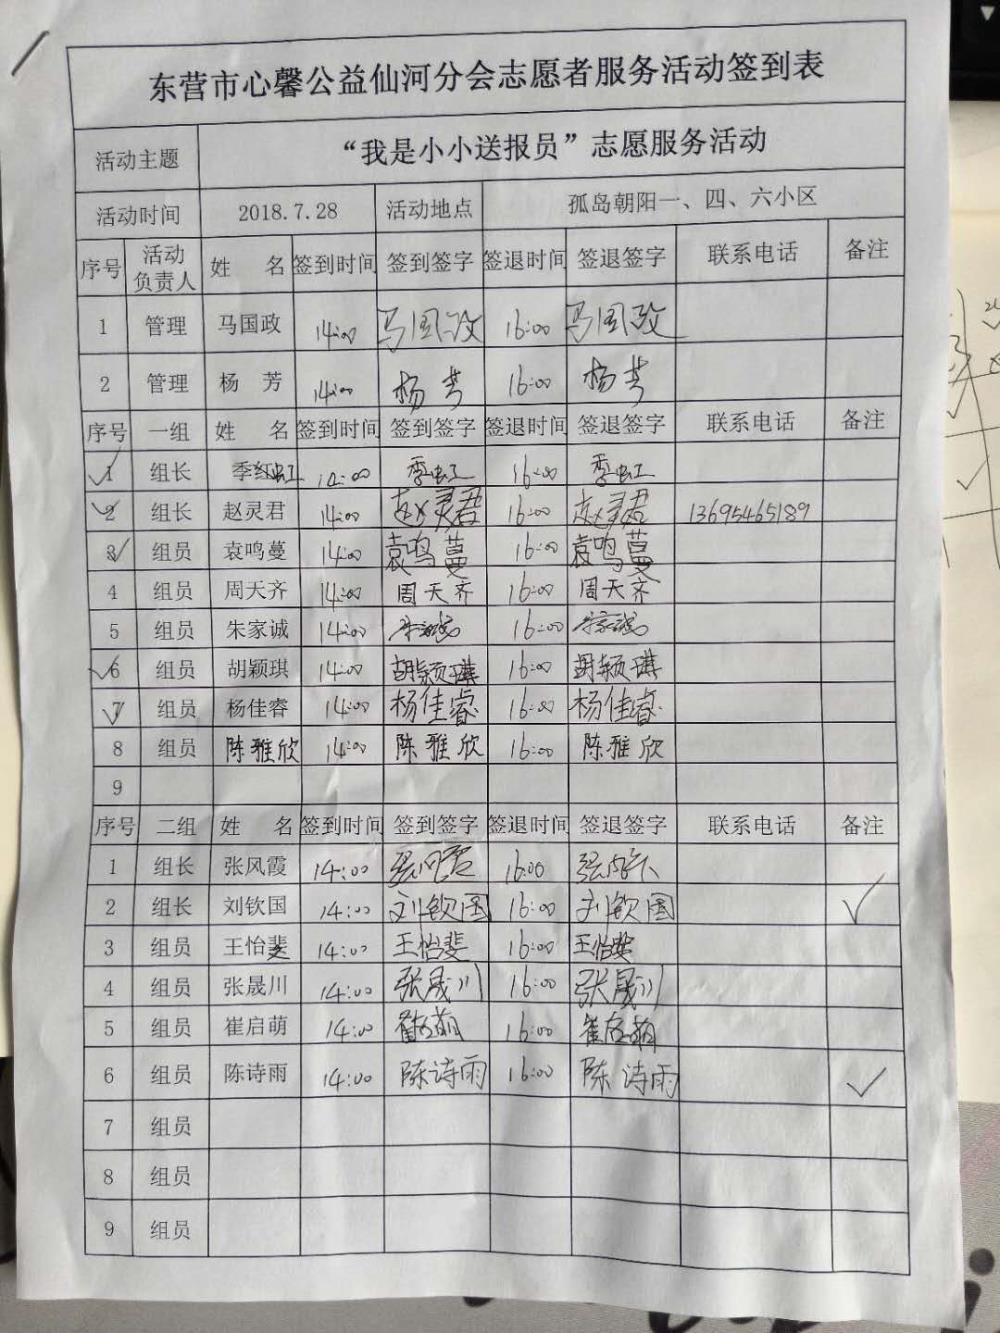 东营市心馨公益仙河分会志愿者服务活动签到表
活动主题 “我是小小送报员”志愿服务活动
活动时间 2018.7.28 活动地点 孤岛朝阳一、四、六小区
序号 活动负责人 姓 名 签到时间 签到签字 签退时间 签退签字 联系电话 备注
1 管理 马国政 14:00 马国政 16:00 马国政
2 管理 杨 芳 14:00 杨芳 16:00 杨芳
序号 一组 姓 名 签到时间 签到签字 签退时间 签退签字 联系电话 备注
✓1 组长 季红虹 14:00 季虹 16:00 季虹
✓2 组长 赵灵君 14:00 赵灵君 16:00 赵灵君 13695465189
3✓ 组员 袁鸣蔓 14:00 袁鸣蔓 16:00 袁鸣蔓
4 组员 周天齐 14:00 周天齐 16:00 周天齐
5 组员 朱家诚 14:00 朱家诚 16:00 朱家诚
✓6 组员 胡颖琪 14:00 胡颖琪 16:00 胡颖琪
✓7 组员 杨佳睿 14:00 杨佳睿 16:00 杨佳睿
8 组员 陈雅欣 14:00 陈雅欣 16:00 陈雅欣
9
序号 二组 姓 名 签到时间 签到签字 签退时间 签退签字 联系电话 备注
1 组长 张风霞 14:00 张风霞 16:00
2 组长 刘钦国 14:00 刘钦国 16:00 刘钦国 ✓
3 组员 王怡斐 14:00 王怡斐 16:00 王怡斐
4 组员 张晟川 14:00 张晟川 16:00 张晟川
5 组员 崔启萌 14:00 崔启萌 16:00 崔启萌
6 组员 陈诗雨 14:00 陈诗雨 16:00 陈诗雨 ✓
7 组员
8 组员
9 组员